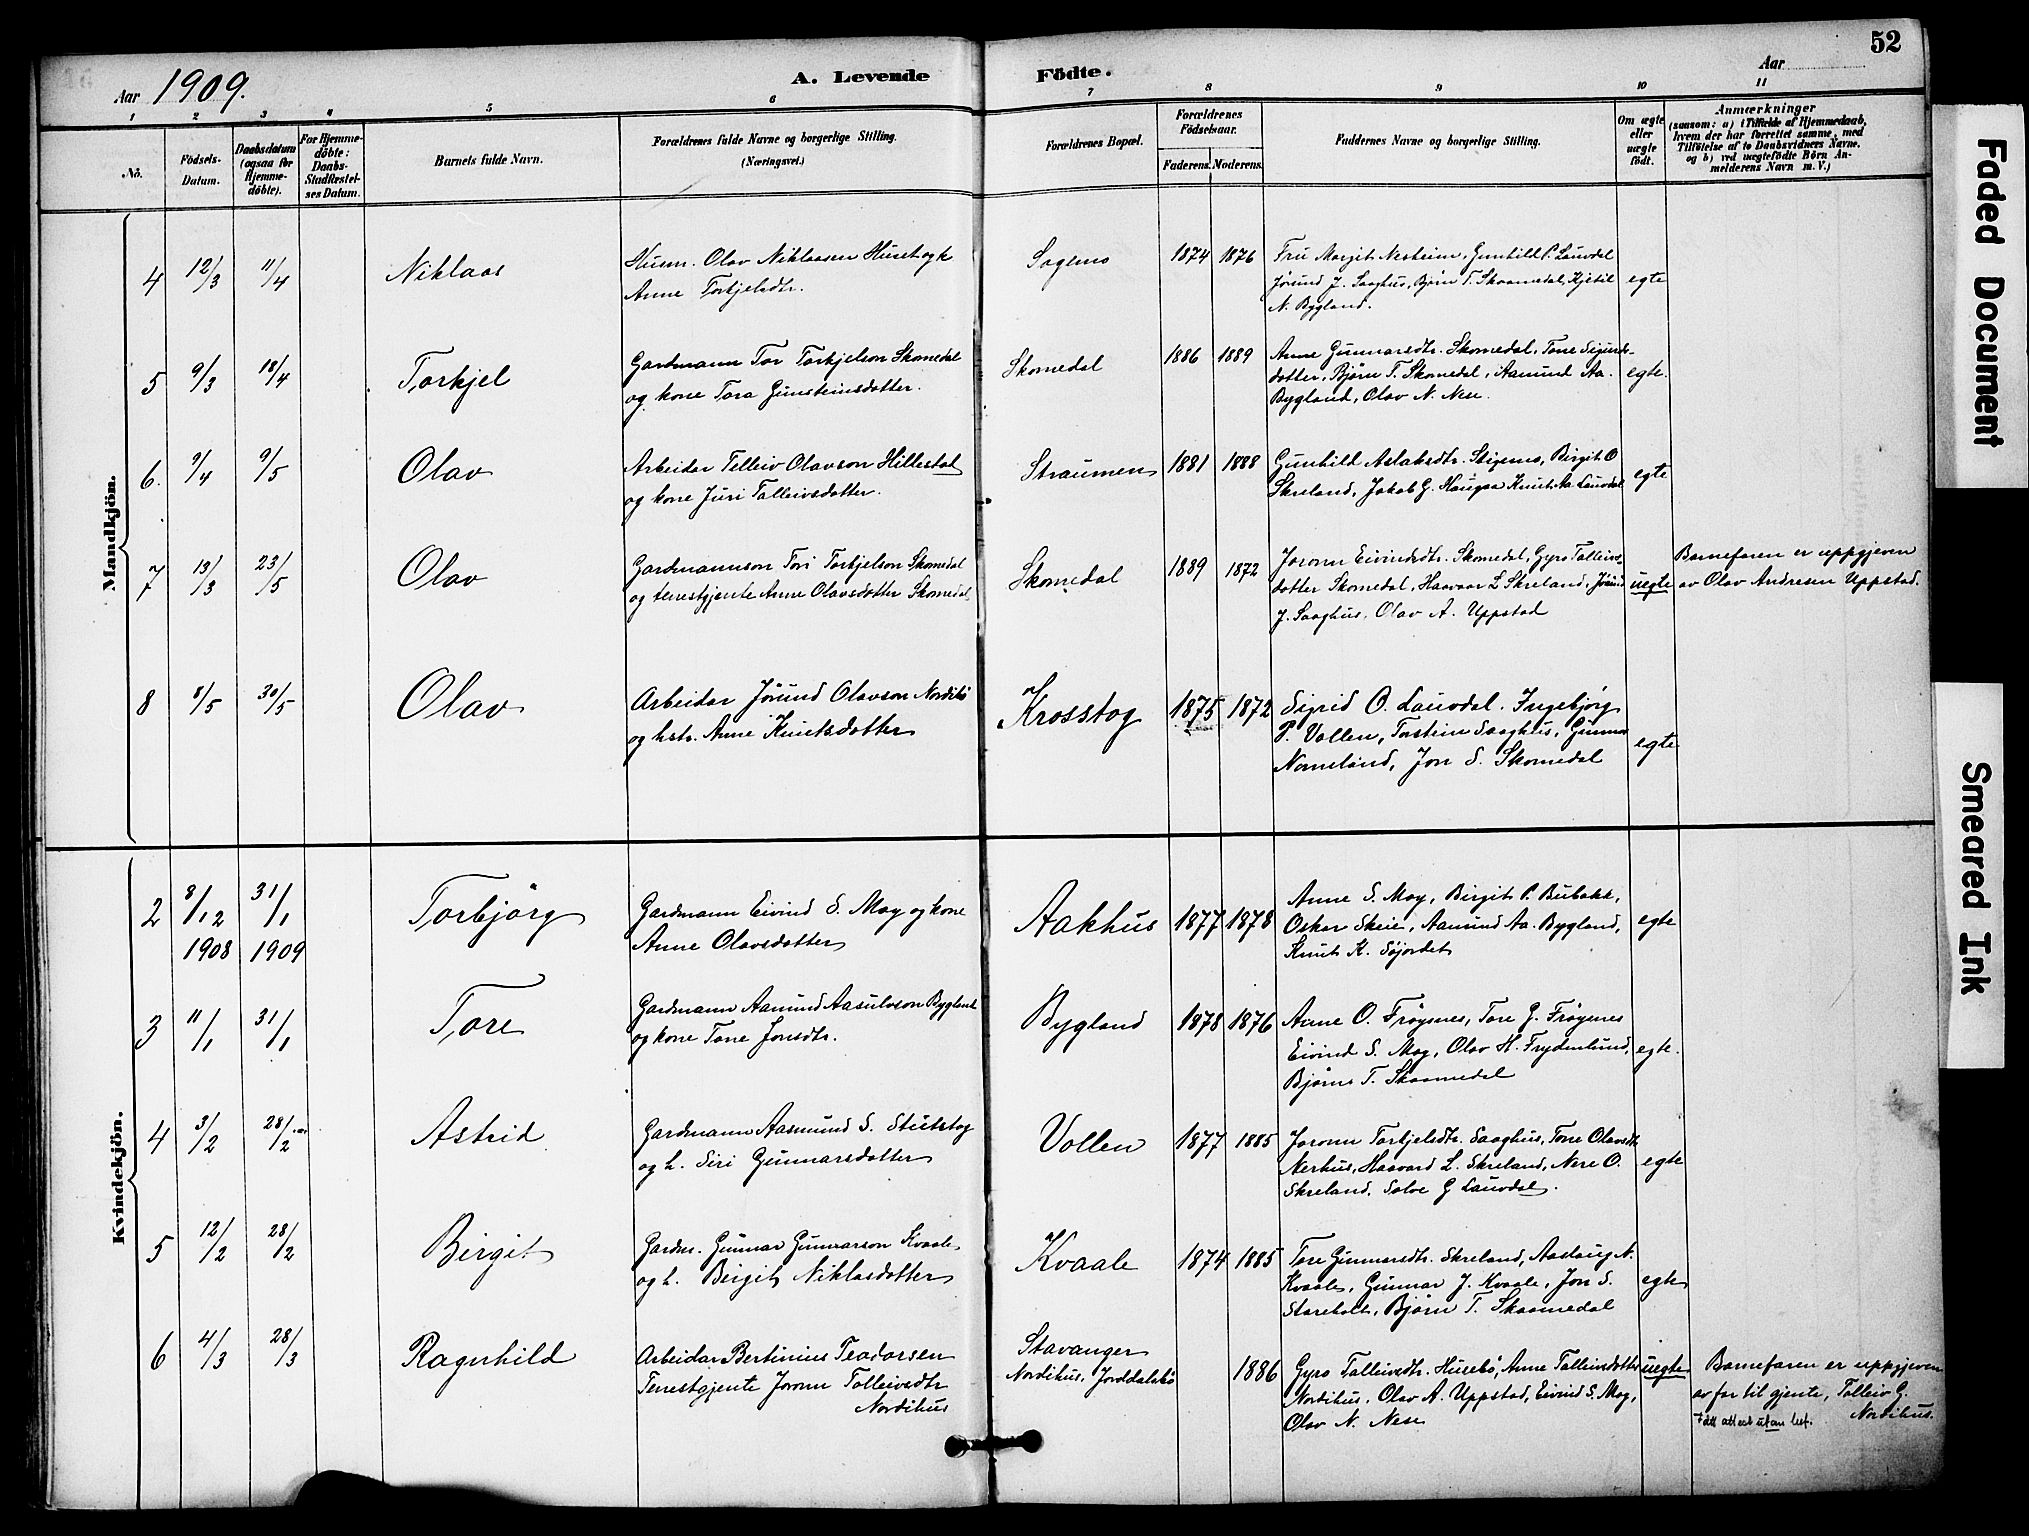 52
Aar 1909.
A. Levende Födte.
Aar
1 2 3 4 5 6 7 8 9 10 11
No.
Födsels-
Datum.
Daabsdatum
(ogsaa for
Hjemme-
döbte).
For Hjemme-
döbte:
Daabs-
Stadfestel-
ses Datum.
Barnets fulde Navn.
Forældrenes fulde Navne og borgerlige Stilling.
(Næringsvei.)
Forældrenes Bopæl.
Forældrenes
Födselsaar.
Faderens. Moderens.
Faddernes Navne og borgerlige Stilling.
Om ægte
eller
uægte
födt.
Anmærkninger
(saasom: a) i Tilfælde af Hjemmedaab,
hvem der har forrettet samme, med
Tilföielse af to Daabsvidners Navne.
og b) ved uægtefödte Börn An-
melderens Navn m. V.)
Mandkjön.
4 12/3 11/4 Niklaas
Husm. Olav Niklaasen Huset og k
Anne Torkjelsdtr.
Sagemo 1874 1876
Fru Margit Nesheim, Gunhild P. Lauvdal
Jørund J. Saaghus, Bjørn T. Skaamedal, Kjetil
N. Bygland.
egte
5 9/3 18/4 Torkjel
Gardmann Tor Torkjelson Skomedal
og kone Tora Gunsteinsdotter.
Skomedal 1886 1889
Anne Gunnarsdtr. Skomedal, Tone Sigurds-
dotter, Bjørn T. Skomedal, Aamund Aa.
Bygland, Olav N. Nese.
egte.
6. 9/4 9/5 Olav
Arbeidar Telleiv Olavson Hillestad
og kone Juri Talleivsdotter.
Straumen 1881 1888
Gunhild Aslaksdtr. Stigemo, Birgit O
Skreland, Jakob G. Haugaa Knut Aa Lauvdal
egte
7 13/3 23/5 Olav
Gardmannson Tori Torkjelson Skomedal
og tenestgjente Anne Olavsdotter Skomedal
Skomedal 1889 1872
Joronn Eivindsdtr. Skomedal, Gyro Talleivs-
dotter Skomedal, Haavar L Skreland, Jörund
J. Saaghus, Olav A. Uppstad
uegte
Barnefaren er uppgjeven
av Olav Andresen Uppstad.
8 8/5 30/5 Olav
Arbeidar Jörund Olavson Nordibö
og hstr. Anne Knutsdotter
Krosstog 1875 1872
Sigrid O. Lauvdal. Ingebjörg
P. Vollen, Torstein Saaghus, Gunnar
Nomeland, Jon S. Skomedal
egte
Kvindekjön.
2 8/12 31/1 Torbjörg
1908 1909
Gardmann Eivind S. Moy og kone
Anne Olavsdotter
Aakhus 1877 1878
Anne S. Moy, Birgit P. Bubakk,
Oskar Skeie, Aamund Aa. Bygland,
Knut K. Söjordet
egte
3 11/1 31/1 Tore
Gardmann Aamund Aasulvson Bygland
og kone Tone Jonsdtr.
Bygland 1878 1876
Anne O. Fröysnes, Tore G. Fröysnes
Eivind S. Moy, Olav H. Frydenlund,
Bjørn T. Skaamedal
egte.
4 3/2 28/2 Astrid
Gardmann Aasmund S. Stutstog
og h. Siri Gunnarsdotter
Vollen 1877 1885
Joronn Torkjelsdtr. Saaghus, Tone Olavsdtr
Nerhus, Haavard L. Skreland, Nere O.
Skreland. Salve G Lauvdal.
egte
5 12/2 28/2 Birgit
Gardm. Gunnar Gunnarson Kvaale
og h. Birgit Niklasdotter
Kvaale 1874 1885
Tore Gunnarsdtr. Skreland, Aaslaug N.
Kvaale, Gunnar J. Kvaale, Jon S.
Stareholt, Bjørn T. Skaamedal
egte
6 4/3 28/3 Ragnhild
Arbeidar Bertinius Teodorsen
Tenestgjente Joronn Talleivsdtr
Nordihus
Stavanger
Nordihus, Jorddalsbö
1886
Gyro Talleivsdtr. Husebö, Anne Talleivsdotter
Nordihus, Olav A. Uppstad, Eivind S. Moy,
Olav N. Nese
uegte
Barnefaren er uppgjeven
av far til gjente, Talleiv G.
Nordihus.
Faded Document
Smeared Ink